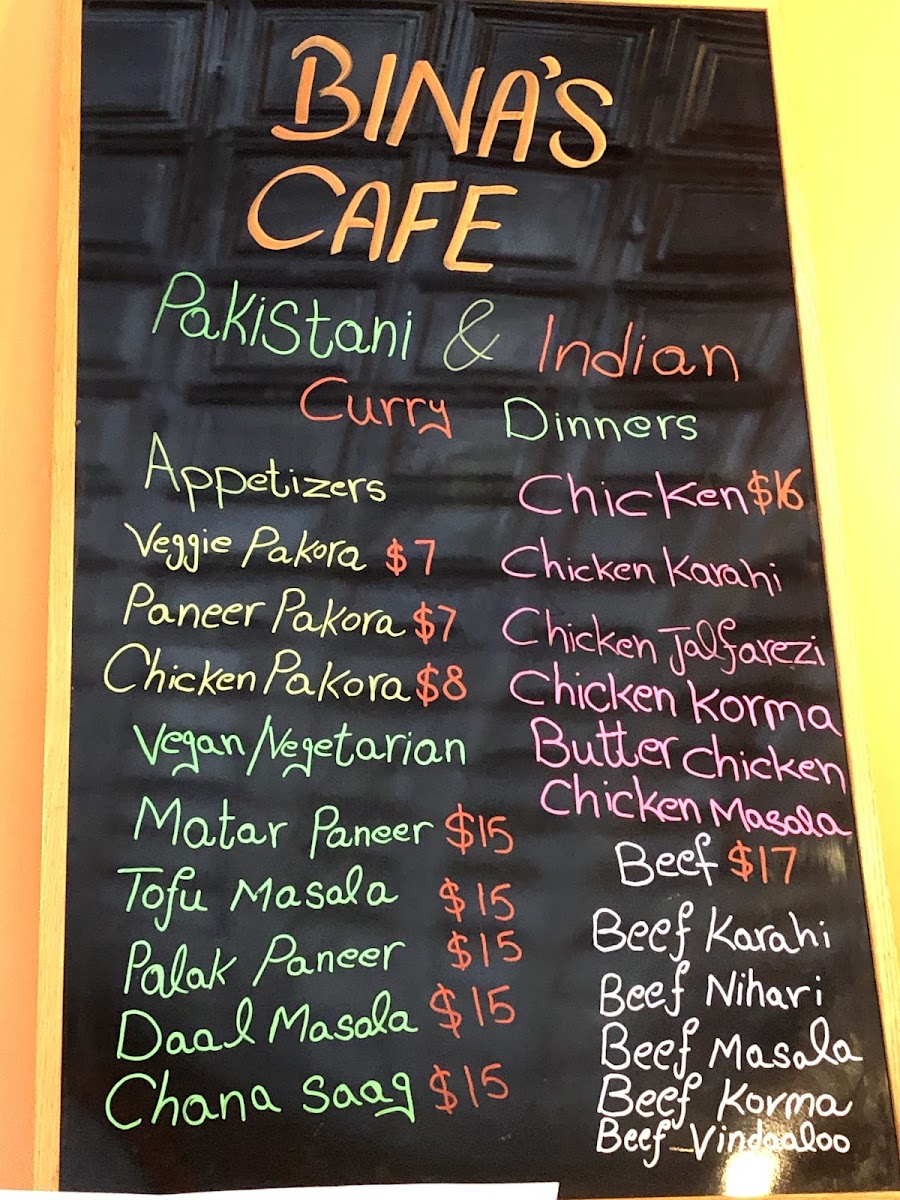 BINA'S
CAFE
Pakistani & Indian
Curry Dinners
Appetizers
Veggie Pakora $7
Paneer Pakora $7
Chicken Pakora $8
Vegan/Vegetarian
Matar Paneer $15
Tofu Masala $15
Palak Paneer $15
Daal Masala $15
Chana Saag $15
Chicken $16
Chicken Karahi
Chicken Jalfarezi
Chicken Korma
Butter Chicken
Chicken Masala
Beef $17
Beef Karahi
Beef Nihari
Beef Masala
Beef Korma
Beef Vindaaloo